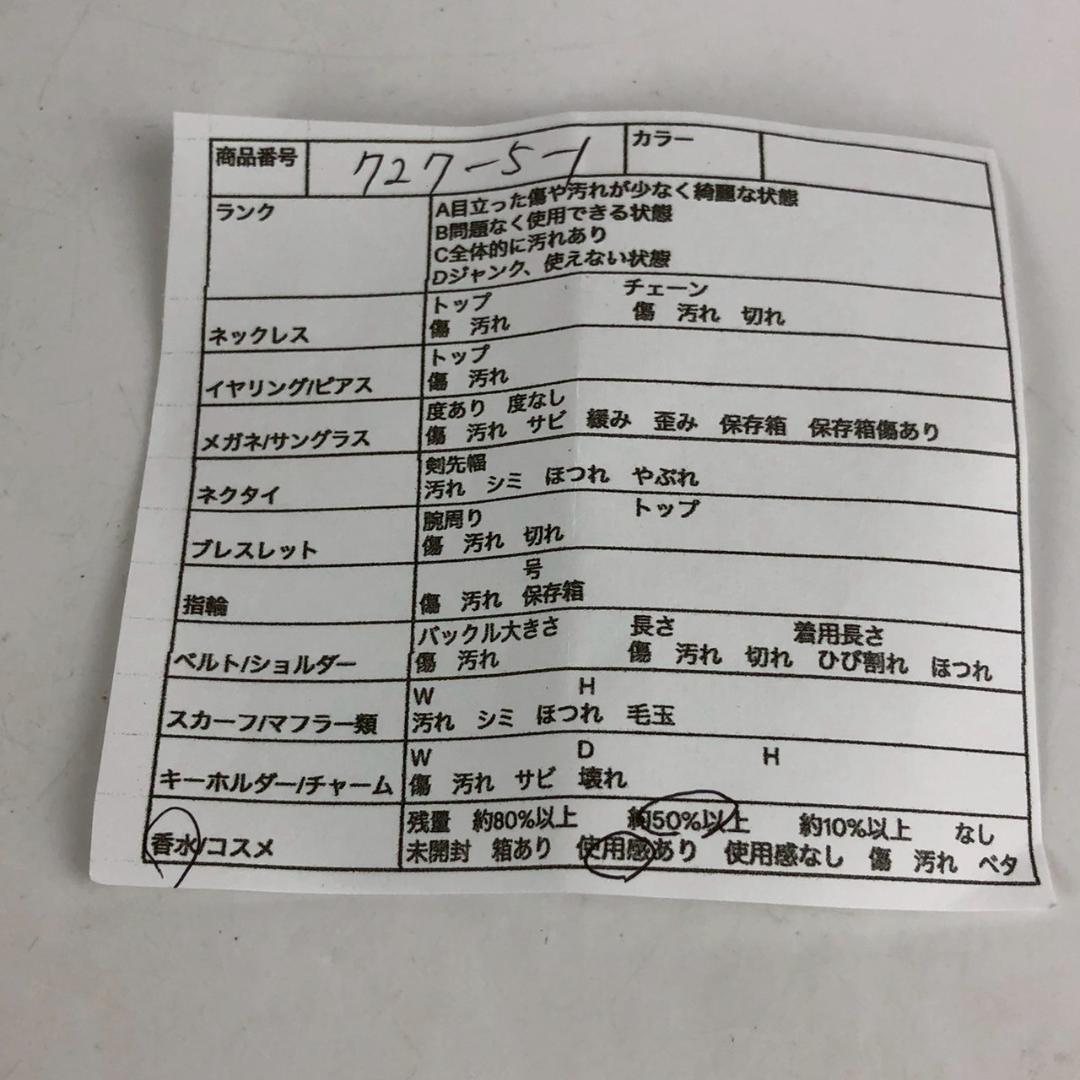 商品番号 727-5-1 カラー
ランク A目立った傷や汚れが少なく綺麗な状態
B問題なく使用できる状態
C全体的に汚れあり
Dジャンク、使えない状態
トップ チェーン
ネックレス 傷 汚れ 傷 汚れ 切れ
トップ
イヤリング/ピアス 傷 汚れ
度あり 度なし
メガネ/サングラス 傷 汚れ サビ 緩み 歪み 保存箱 保存箱傷あり
剣先幅
ネクタイ 汚れ シミ ほつれ やぶれ
腕周り トップ
ブレスレット 傷 汚れ 切れ
号
指輪 傷 汚れ 保存箱
バックル大きさ 長さ 着用長さ
ベルト/ショルダー 傷 汚れ 傷 汚れ 切れ ひび割れ ほつれ
W H
スカーフ/マフラー類 汚れ シミ ほつれ 毛玉
W D H
キーホルダー/チャーム 傷 汚れ サビ 壊れ
残量 約80%以上 約50%以上 約10%以上 なし
香水/コスメ 未開封 箱あり 使用感あり 使用感なし 傷 汚れ ベタ